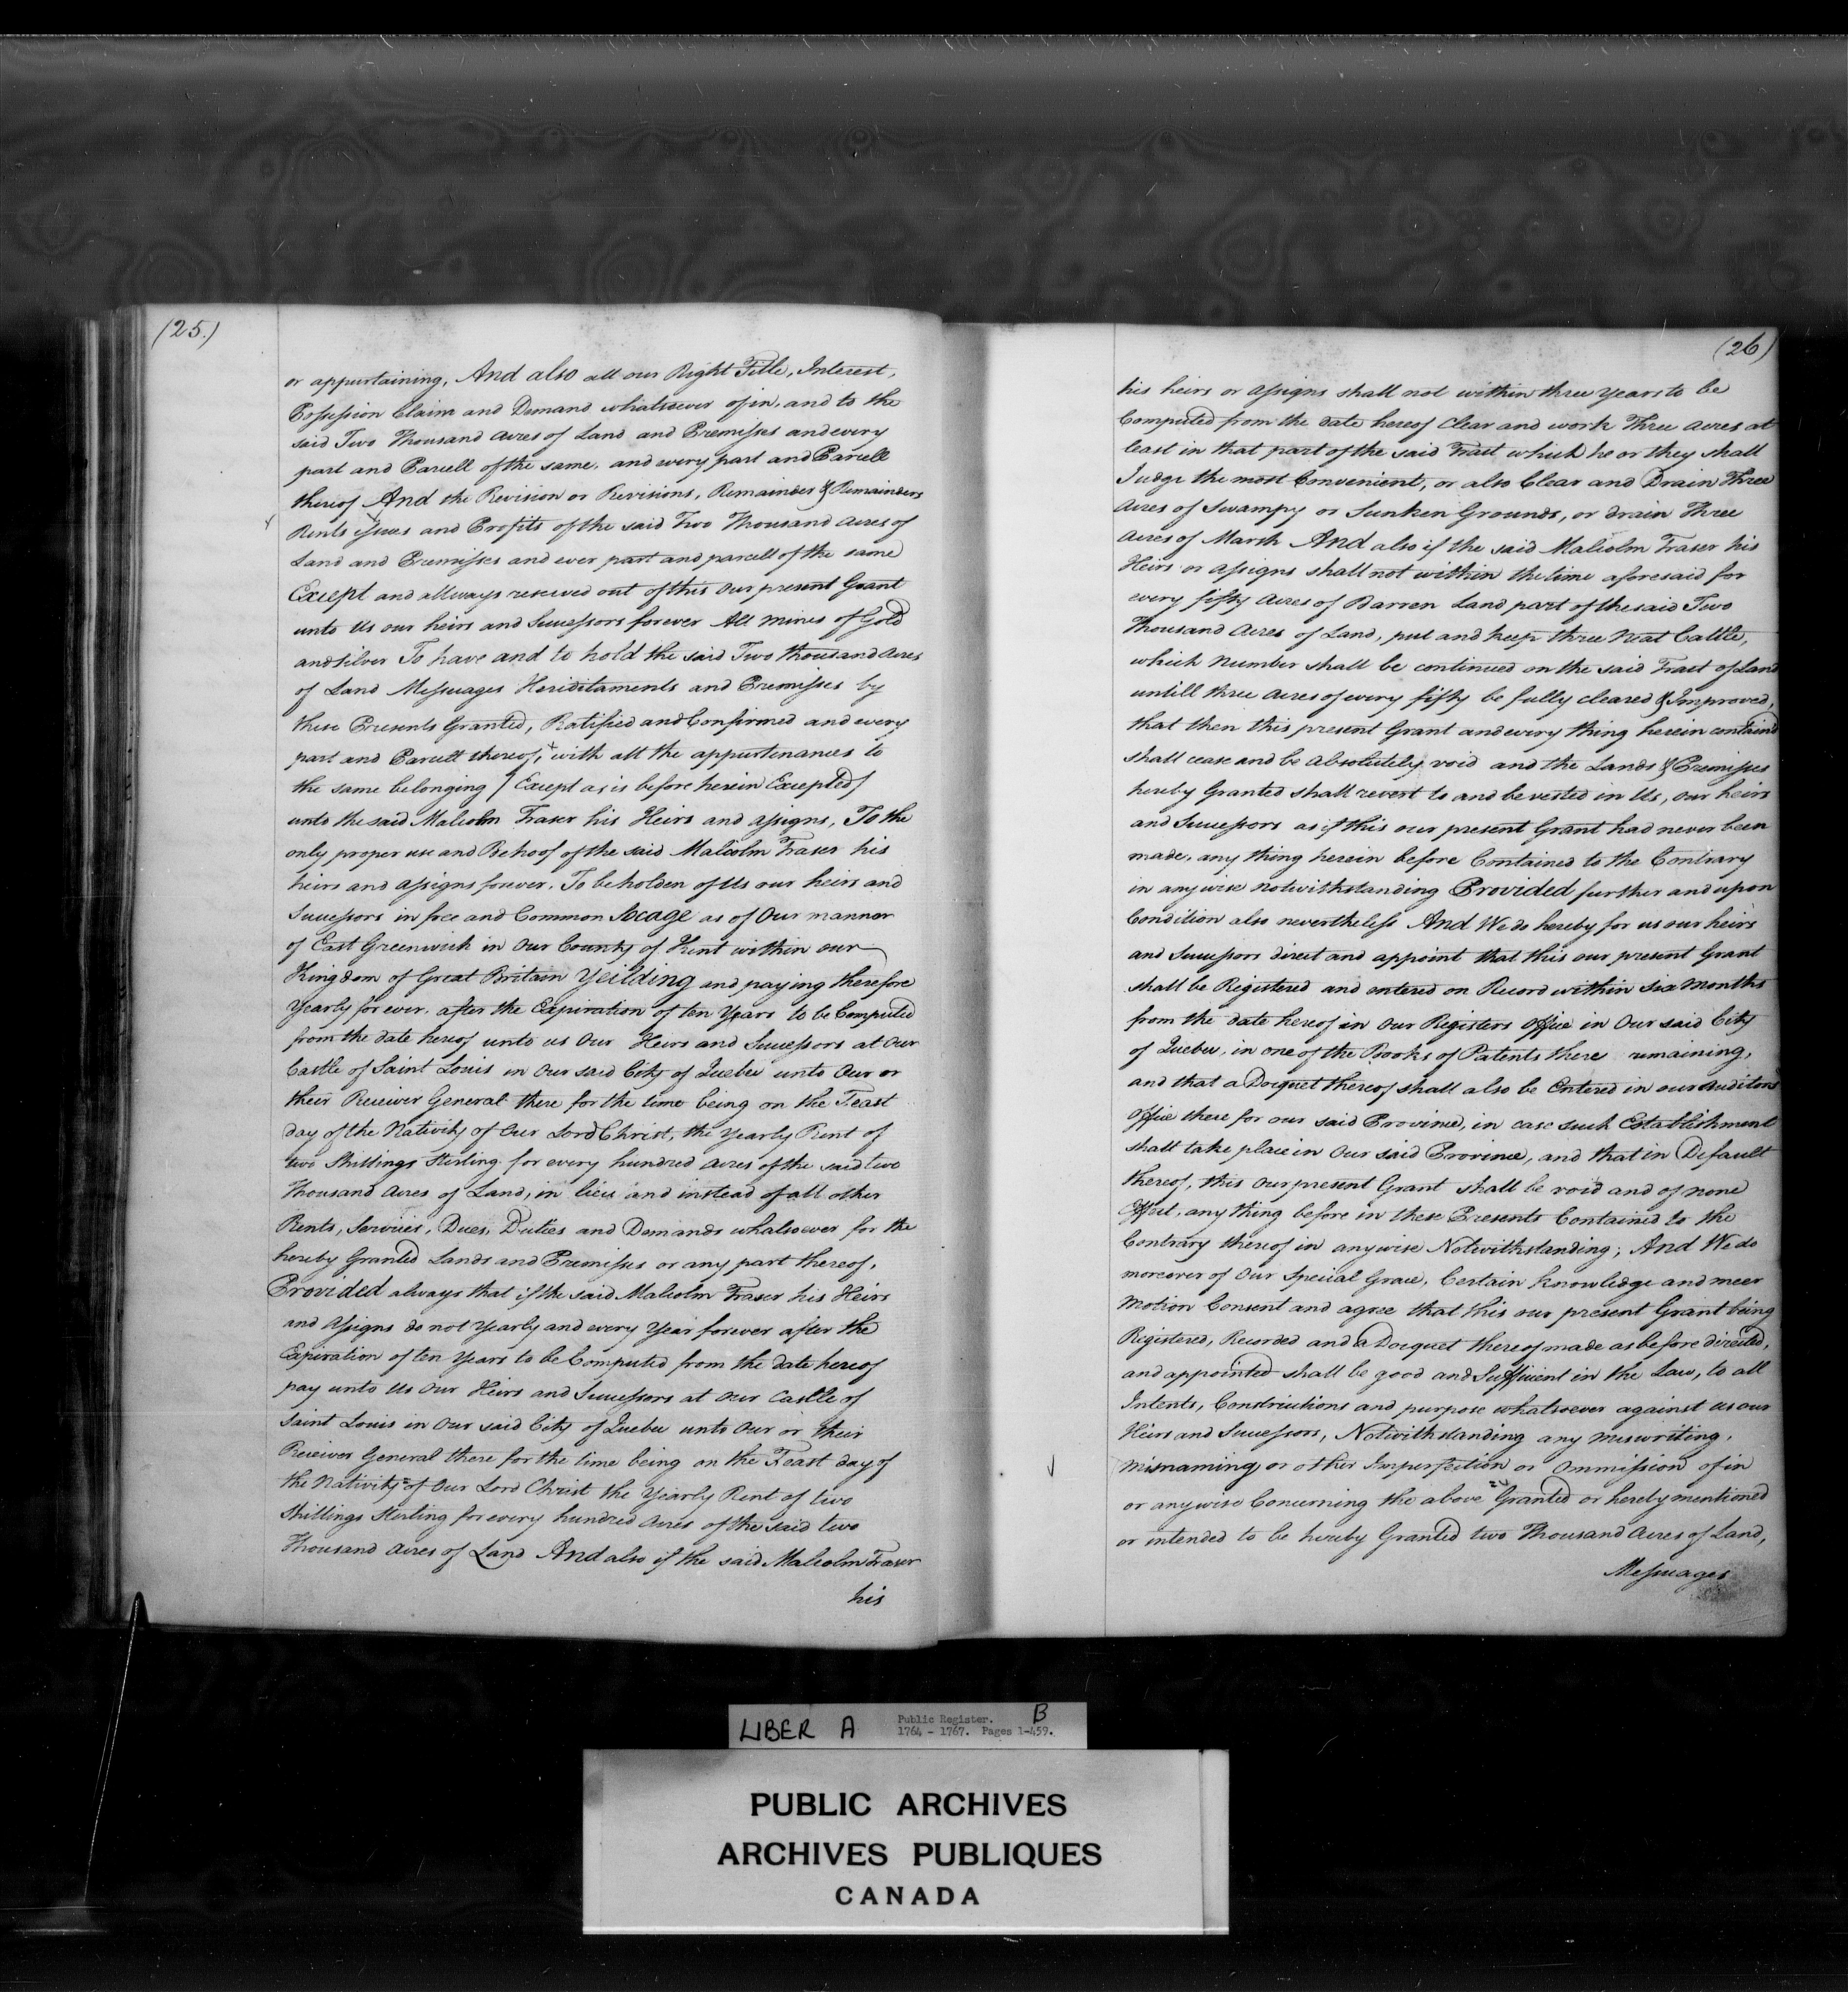 (25.)
or appurtaining, And also all our Right Title, Interest,
Possession Claim and Demand whatsoever of in, and to the
said Two Thousand Acres of Land and Premisses and every
part and Parcell of the same, and every part and Parcell
thereof And the Revision or Revisions, Remainder & Remainders
Rents Issues and Profits of the said Two Thousand Acres of
Land and Premisses and ever part and parcell of the same
Except and allways reserved out of this Our present Grant
unto Us our heirs and Successors forever All mines of Gold
and silver To have and to hold the said Two thousand Acres
of Land Messuages Heriditaments and Premisses by
these Presents Granted, Ratified and Confirmed and every
part and Parcell thereof, with all the appurtenances to
the same belonging / Except as is before herein Excepted /
unto the said Malcolm Fraser his Heirs and assigns, To the
only proper use and Behoof of the said Malcolm Fraser his
heirs and assigns forever. To be holden of Us our heirs and
Successors in free and Common Socage as of Our mannor
of East Greenwich in Our County of Kent within our
Kingdom of Great Britain Yeilding and paying therefore
Yearly for ever, after the Expiration of ten Years to be Computed
from the date hereof unto us Our Heirs and Successors at Our
Castle of Saint Louis in Our said City of Quebec unto Our or
their Receiver General there for the time being on the Feast
day of the Nativity of Our Lord Christ, the Yearly Rent of
two Shillings Sterling for every hundred Acres of the said two
Thousand Acres of Land, in lieu and instead of all other
Rents, Services, Dues, Duties and Demands whatsoever for the
hereby Granted Lands and Premisses or any part thereof,
Provided always that if the said Malcolm Fraser his Heirs
and Assigns do not Yearly and every Year forever after the
Expiration of ten Years to be Computed from the date hereof
pay unto Us Our Heirs and Successors at Our Castle of
Saint Louis in Our said City of Quebec unto Our or their
Receiver General there for the time being on the Feast day of
the Nativity of Our Lord Christ the Yearly Rent of two
Shillings Sterling for every hundred Acres of the said two
Thousand Acres of Land And also if the said Malcolm Fraser
his
(26)
his heirs or assigns shall not within three Years to be
Computed from the date hereof Clear and work Three Acres at
least in that part of the said Tract which he or they shall
Judge the most Convenient, or also Clear and Drain Three
Acres of Swampy or Sunken Grounds, or drain Three
Acres of Marsh And also if the said Malcolm Fraser his
Heirs or Assigns shall not within the time aforesaid for
every fifty Acres of Barren Land part of the said Two
Thousand Acres of Land, put and keep three Neat Cattle,
which Number shall be continued on the said Tract of Land
untill three Acres of every fifty be fully cleared & Improved,
that then this present Grant and every thing herein containd
shall cease and be Absolutely void and the Lands & Premisses
hereby Granted shall revert to and be vested in Us, Our heirs
and Successors as if this our present Grant had never been
made, any thing herein before Contained to the Contrary
in anywise notwithstanding Provided further and upon
Condition also nevertheless And We do hereby for us our heirs
and Successors direct and appoint that this our present Grant
shall be Registered and entered on Record within Six Months
from the date hereof in Our Registers Office in Our said City
of Quebec, in one of the Books of Patents there remaining,
and that a Docquet thereof shall also be Entered in our Auditors
Office there for our said Province, in case such Establishment
shall take place in Our said Province, and that in Default
thereof, this Our present Grant shall be void and of none
Effect, any thing before in these Presents Contained to the
Contrary thereof in anywise Notwithstanding; And We do
moreover of Our Special Grace, Certain knowledge and meer
Motion Consent and agree that this our present Grant being
Registered, Recorded and a Docquet thereof made as before directed,
and appointed shall be good and Sufficient in the Law, to all
Intents, Constructions and purpose whatsoever against us our
Heirs and Successors, Notwithstanding any miswriting,
Misnaming or other Imperfection or Ommission of in
or anywise Concerning the above Granted or hereby mentioned
or intended to be hereby Granted two Thousand Acres of Land,
Messuages
LIBER A
Public Register. B
1764 - 1767. Pages 1-459.
PUBLIC ARCHIVES
ARCHIVES PUBLIQUES
CANADA